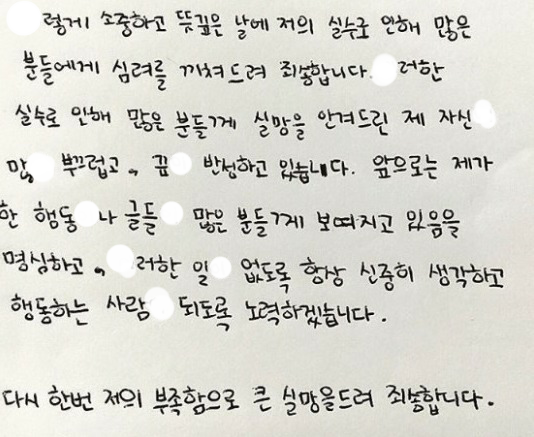 렇게 소중하고 뜻깊은 날에 저의 실수로 인해 많은
분들에게 심려를 끼쳐드려 죄송합니다. 러한
실수로 인해 많은 분들께 실망을 안겨드린 제 자신
많 부끄럽고, 깊 반성하고 있습니다. 앞으로는 제가
한 행동 나 글들 많은 분들께 보여지고 있음을
명심하고, 러한 일 없도록 항상 신중히 생각하고
행동하는 사람 되도록 노력하겠습니다.
다시 한번 저의 부족함으로 큰 실망을드려 죄송합니다.